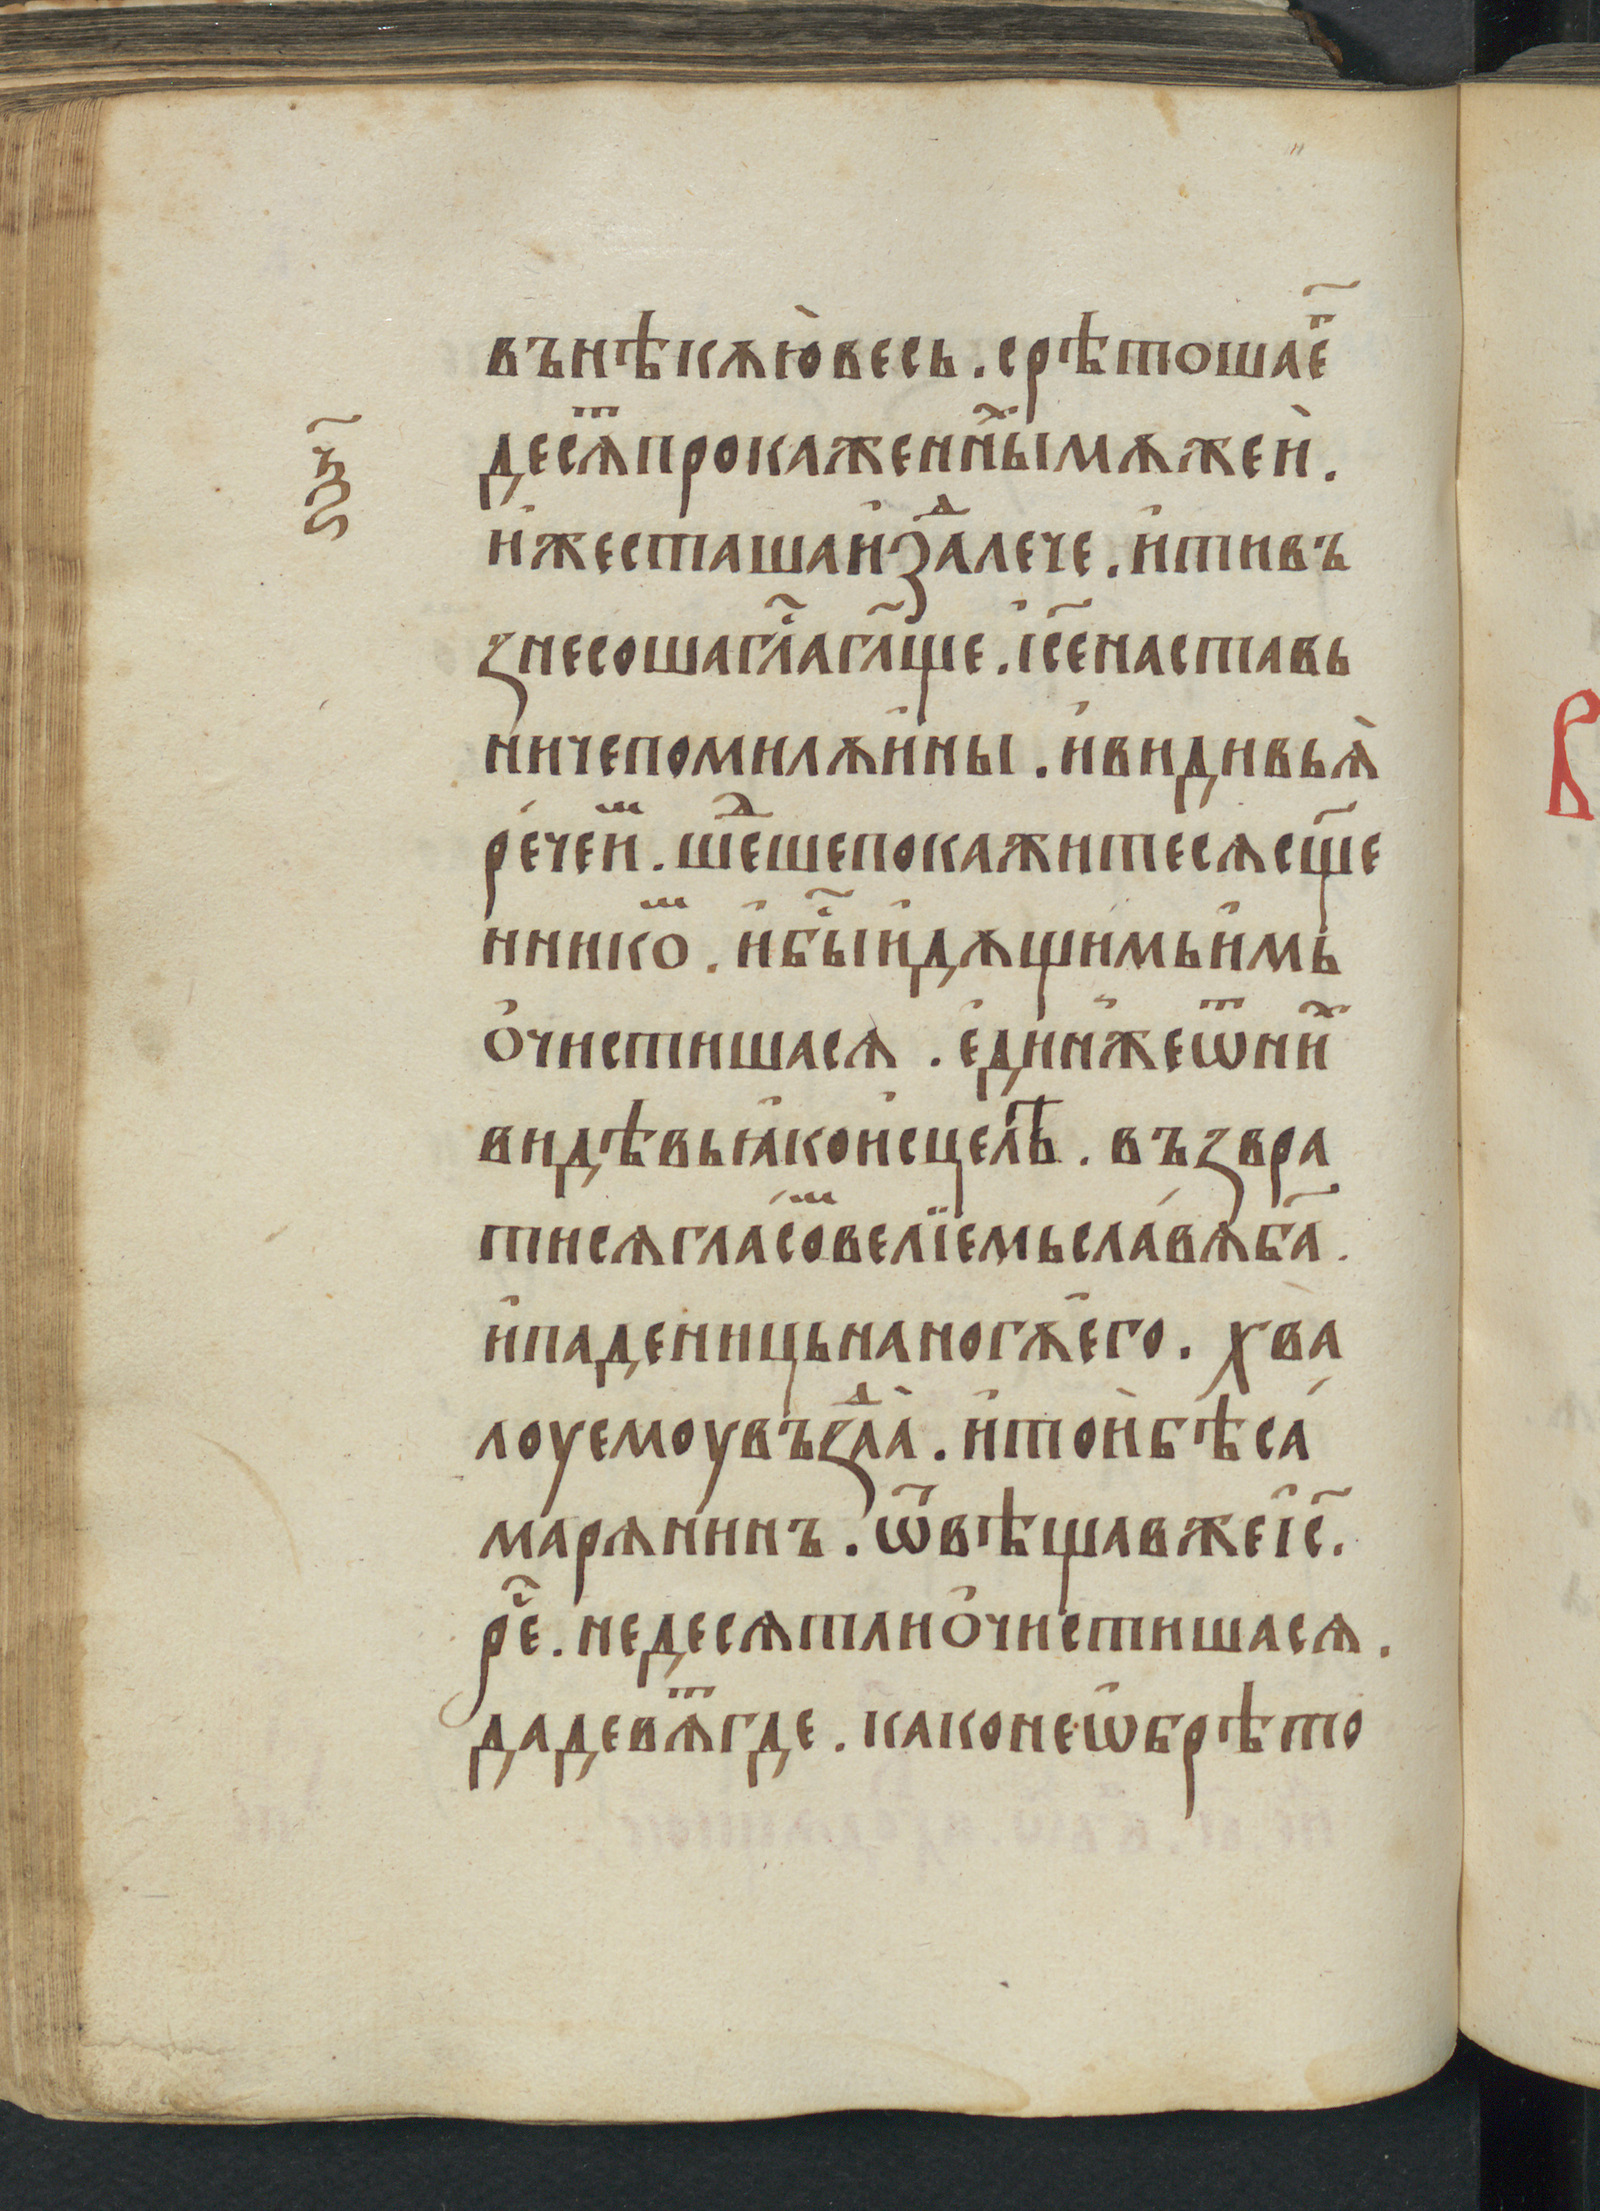 въ нѣкѫю̀ весь . срѣтоша е҃г
десѧⷮ прокаженныⷯ мѫжеѝ .
и҆же сташа и҆здⷣалече . и҆ ти въ
знесоша гл҃а гл҃ще . і҆с҃е наставь
ниче помилѫи҆ ны . и҆ видивь ѧ̀
рече иⷨ . шеⷣше покажитесѧ сщ҃е
ннникоⷨ . и҆ бы҃ и҆дѫщимь и҆мь
ѻ҆чистишасѧ . е҆динже ѿ ниⷯ
видѣвь ꙗ҆ко и҆сцелѣ . възвра
тисѧ гласоⷨ велїемь славѧ б҃а .
и҆ паде ниць на ногѫ е҆го . хва
лоу емоу въздⷣаа̀ . и҆ тои̇ бѣ са
марѧнинъ . ѿвѣщав же і҆с҃ .
ре҃ . не десѧт ли ѻ҆чистишасѧ .
да девѧⷮ где . како не ѡ҆брѣто